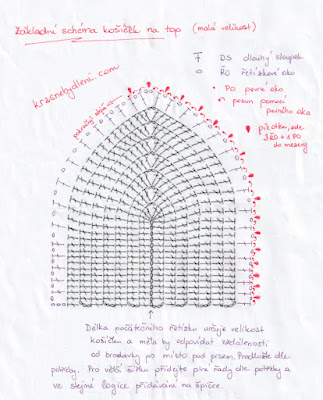 Základní schéma košíčků na top (malá velikost)
krasnebydleni.com
DS dlouhý sloupek
ŘO řetízkové oko
PO pevné oko
posun pomocí
pevného oka
pikotka, zde
3ŘO + 1 PO
do mezery
Délka počátečního řetízku určuje velikost
košíčku a měla by odpovídat vzdálenosti
od bradavky po místo pod prsem. Prodlužte dle
potřeby. Pro větší šířku přidejte plné řady dle potřeby a
ve stejné logice přidávání na špičce.